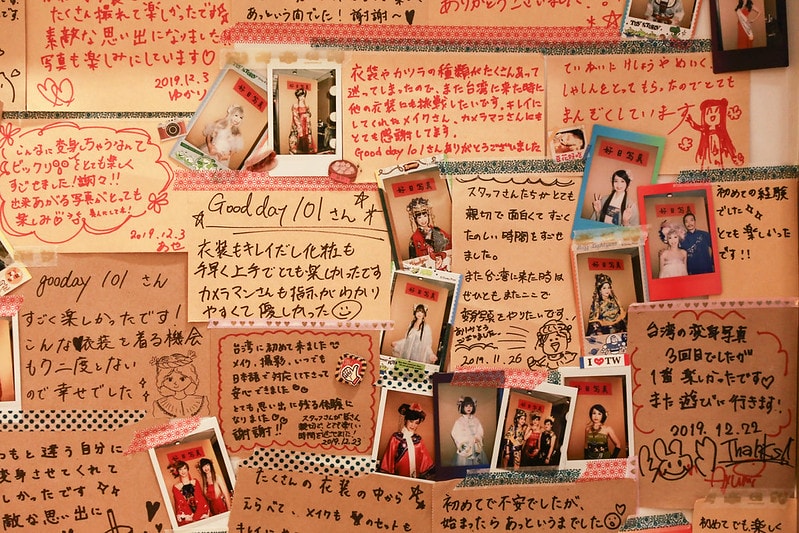 たくさん撮れて楽しかったです
素敵な思い出になりました
写真も楽しみにしています♡
2019.12.3
ゆかり
あっという間でした！謝謝〜♥
ありがとうございました
衣装やカツラの種類がたくさんあって
迷ってしまったので、また台湾に来た時に
他の衣装にも挑戦したいです。キレイに
してくれたメイクさん、カメラマンさんにも
とても感謝してます。
Good day 101さんありがとうございました
ていねいにけしょうやめいく、
しゃしんをとってもらったのでとても
まんぞくしています
こんなに変身しちゃうなんて
ビックリ
とても楽しく
すごせました！謝々！！
出来あがる写真がとっても
楽しみ
2019.12.3
あせ
Good day 101 さん
衣装もキレイだし化粧も
手早く上手でとても楽しかったです
カメラマンさんも指示がわかり
やすくて優しかった
スタッフさんたちがとても
親切で面白くてすごく
たのしい時間をすごせ
ました。
また台湾に来た時は
ぜひともまたここで
変身をやりたいです！
ありがとう
ございました
2019.11.26
初めての経験
でした
とても楽しかった
です！！
gooday 101 さん
すごく楽しかったです！
こんな♥衣装を着る機会
もう二度とない
ので幸せでした
台湾に初めて来ました
メイク、撮影、いつでも
日本語で対応して下さって
安心できました
とても思い出に残る体験に
なりました
謝謝！！
スタッフさんが皆さん
親切で、とても楽しい
時間を過ごせました！
2019.12.23
I ♥ TW
台湾の変身写真
3回目でしたが
1番楽しかったです♡
また遊びに行きます！
2019.12.22
Thanks!
いつもと違う自分に
変身させてくれて
楽しかったです
素敵な思い出に
たくさんの衣装の中から
えらべて、メイクも髪のセットも
初めてで不安でしたが、
始まったらあっというまでした
初めてでも楽しく
好日写真
好日写真
好日写真
好日写真
好日写真
好日写真
好日写真